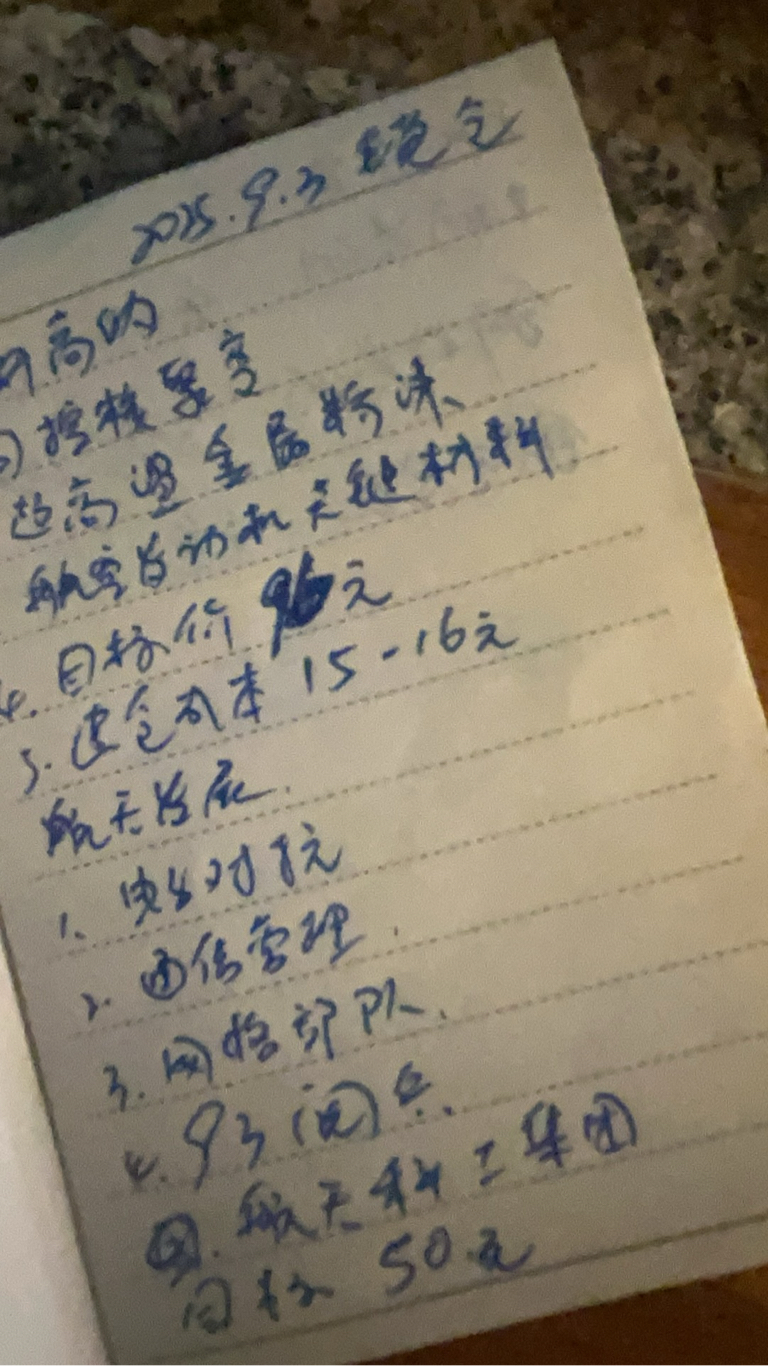 2025.9.3
高的
控核聚变
超高温金属粉沫、
航空发动机关键材料
4. 目标价 96元
5. 建仓成本 15-16元
航天发展.
1.  对抗
2. 通信管理.
3. 网络部队.
4. 93阅兵.
航天科工集团
目标 50元